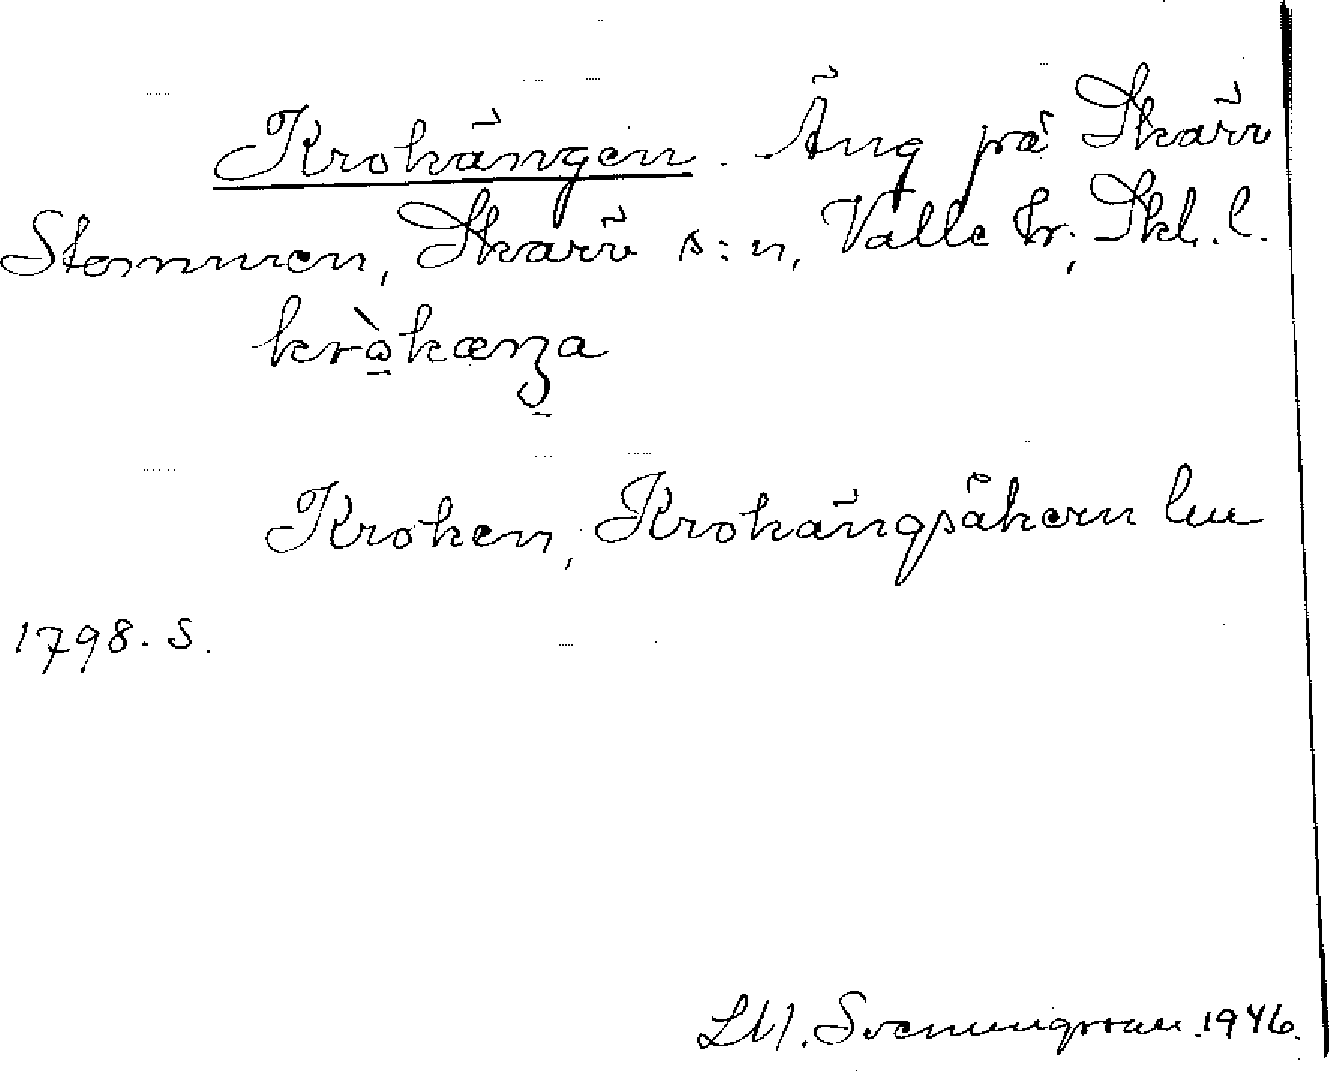 Krokängen. Äng på Skärv
Stommen, Skärv s:n, Valle hr; Skb. l.
kròkæŋa
Kroken, Krokängsåkern lm
1798. S.
LM. Svenungsson 1946.